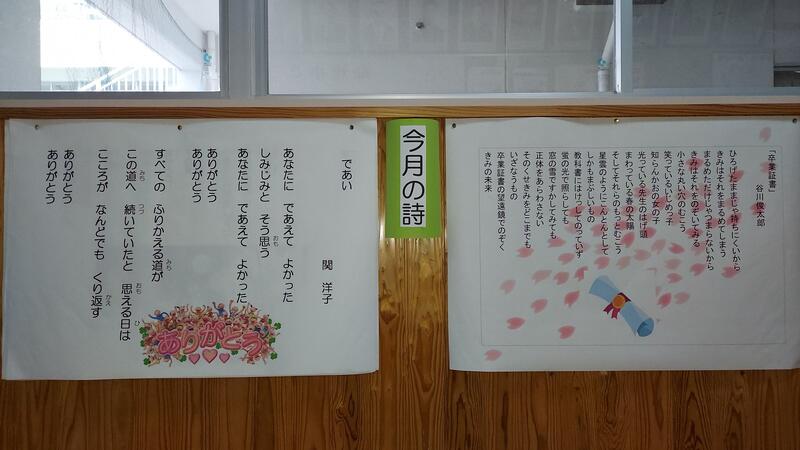 今月の詩
「卒業証書」
谷川俊太郎
ひろげたままじゃ持ちにくいから
きみはそれをまるめてしまう
まるめただけじゃつまらないから
きみはそれをのぞいてみる
小さな丸い穴のむこう
笑っているいじめっ子
知らんかおの女の子
光っている先生のはげ頭
まわっている春の太陽
そしてそれらのもっとむこう
星雲のようにこんとんとして
しかもまぶしいもの
教科書にはけっしてのっていず
蛍の光で照らしても
窓の雪ですかしてみても
正体をあらわさない
そのくせきみをどこまでも
いざなうもの
卒業証書の望遠鏡でのぞく
きみの未来
であい
関 洋子
あなたに であえて よかった
しみじみと そう思う
あなたに であえて よかった
ありがとう
ありがとう
すべての ふりかえる道が
この道へ 続いていたと 思える日は
こころが なんどでも くり返す
ありがとう
ありがとう
ありがとう